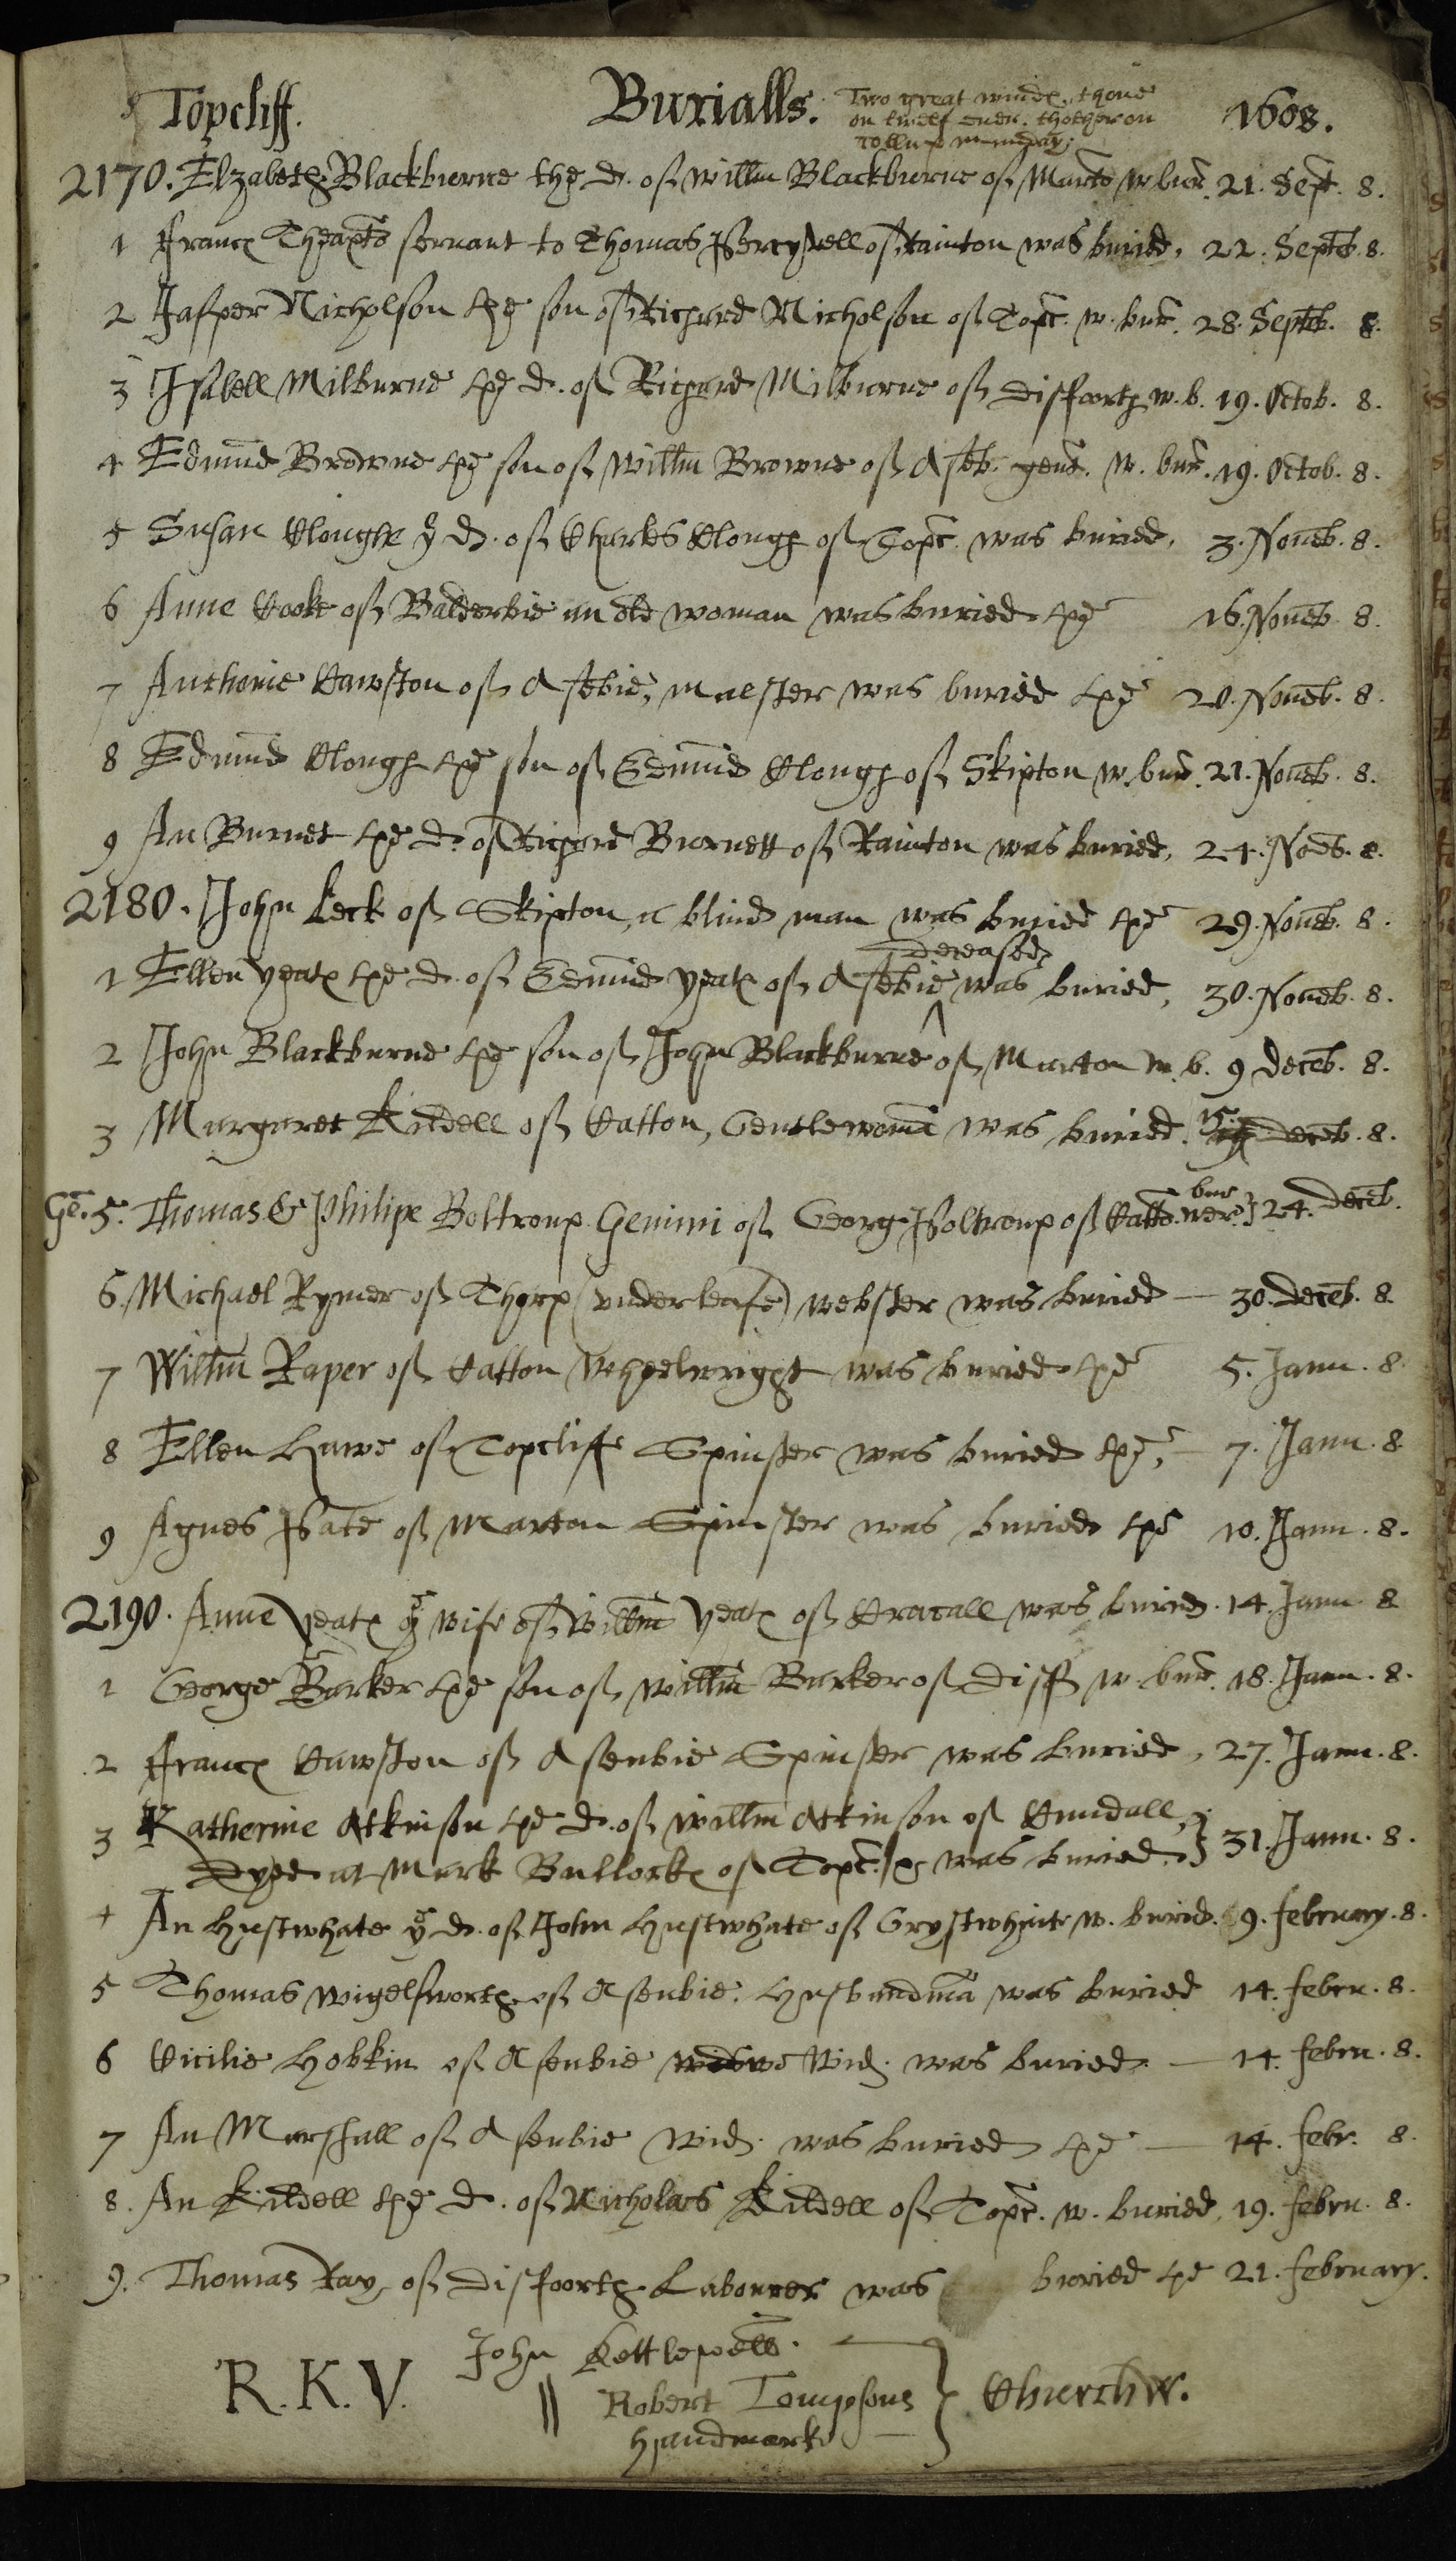 Topcliff. Burialls. 1608.
Two great windes, thone
on twelf euen. thother on
Collup munday.
2170. Elzabeth Blackburne the d. of Willm Blackburne of Marto w. bur. 21. Sept. 8.
1 Franc servant to Thomas of Rainton was buried, 22. Septeb. 8.
2 Jasper Nicholson the son of Richard Nicholson of Topc. w. bur. 28. Septeb. 8.
3 Isabell Milburne the d. of Richard Milburne of disfoorth w. b. 19. Octob. 8.
4 Edmund Browne the son of Willm Browne of Aseb. gener. w. bur. 19. Octob. 8.
5 Susan Clough ye d. of Charles Clough of Topc. was buried, 3. Noueb. 8.
6 Anne Cooke of Balderbie an old woman was buried the 16. Noueb. 8.
7 Anthonie Cawston of Asebie, was buried the 20. Noueb. 8.
8 Edmund Clough the son of Edmund Clough of Skipton w. bur. 21. Noueb. 8.
9 An Burnet the d. of Richard Burnett of Rainton was buried, 24. Noeb. 8.
2180. John Leck of Skipton, a blind man was buried the 29. Noueb. 8.
deceased
1 Ellen yeats the d. of Edmund yeats of Asebie ^ was buried, 30. Noueb. 8.
2 John Blackburne the son of John Blackburne of Marton w. b. 9 deceb. 8.
3 Margaret Kildell of Catton, Gentlewoma was buried. 15. deceb. 8.
Ge. 5. Thomas & Philipe Boltroup Gemini of Georg Boltroup of Catto. wer bur } 24. deceb.
6. Michael Rymer of Thorp (vnderleafe) webster was buried — 30. deceb. 8.
7 Willm Raper of Catton Wheelwright was buried the 5. Janu. 8.
8 Ellen Hawe of Topcliffe Spinster was buried the, 7. Janu. 8.
9 Agnes Bate of Marton Spinster was buried the 10. Janu. 8.
2190. Anne yeats ye wife of Willm yeats of Cracall was buried. 14. Janu. 8.
1 George Barker the son of Willm Barker of Disf. w. bur. 18. Janu. 8.
2 Franc Cawston of Asenbie Spinster was buried, 27. Janu. 8.
3 Katherine Atkinson the d. of Willm Atkinson of Cundall, } 31. Janu. 8.
Dyed at Mark Bullocks of Topc. & was buried.
4 An Hustwhate ye d. of John Hustwhate of Grystwhaite w. buried. 9. february. 8.
5 Thomas Wigelsworth of Asenbie. Husbandma was buried 14. febru. 8.
6 Cicilie Hobkin of Asenbie Wid. was buried. — 14. febru. 8.
7 An Marshall of Asenbie Wid. was buried the — 14. febr. 8.
8. An Kildell the d. of Nicholas Kildell of Topc. w. buried, 19. febru. 8.
9. Thomas Kay, of disfoorth Labourer was buried the 21. february.
R. K. V. John Kettlewell.
|| Robert Tompsons } Churchw.
handmark